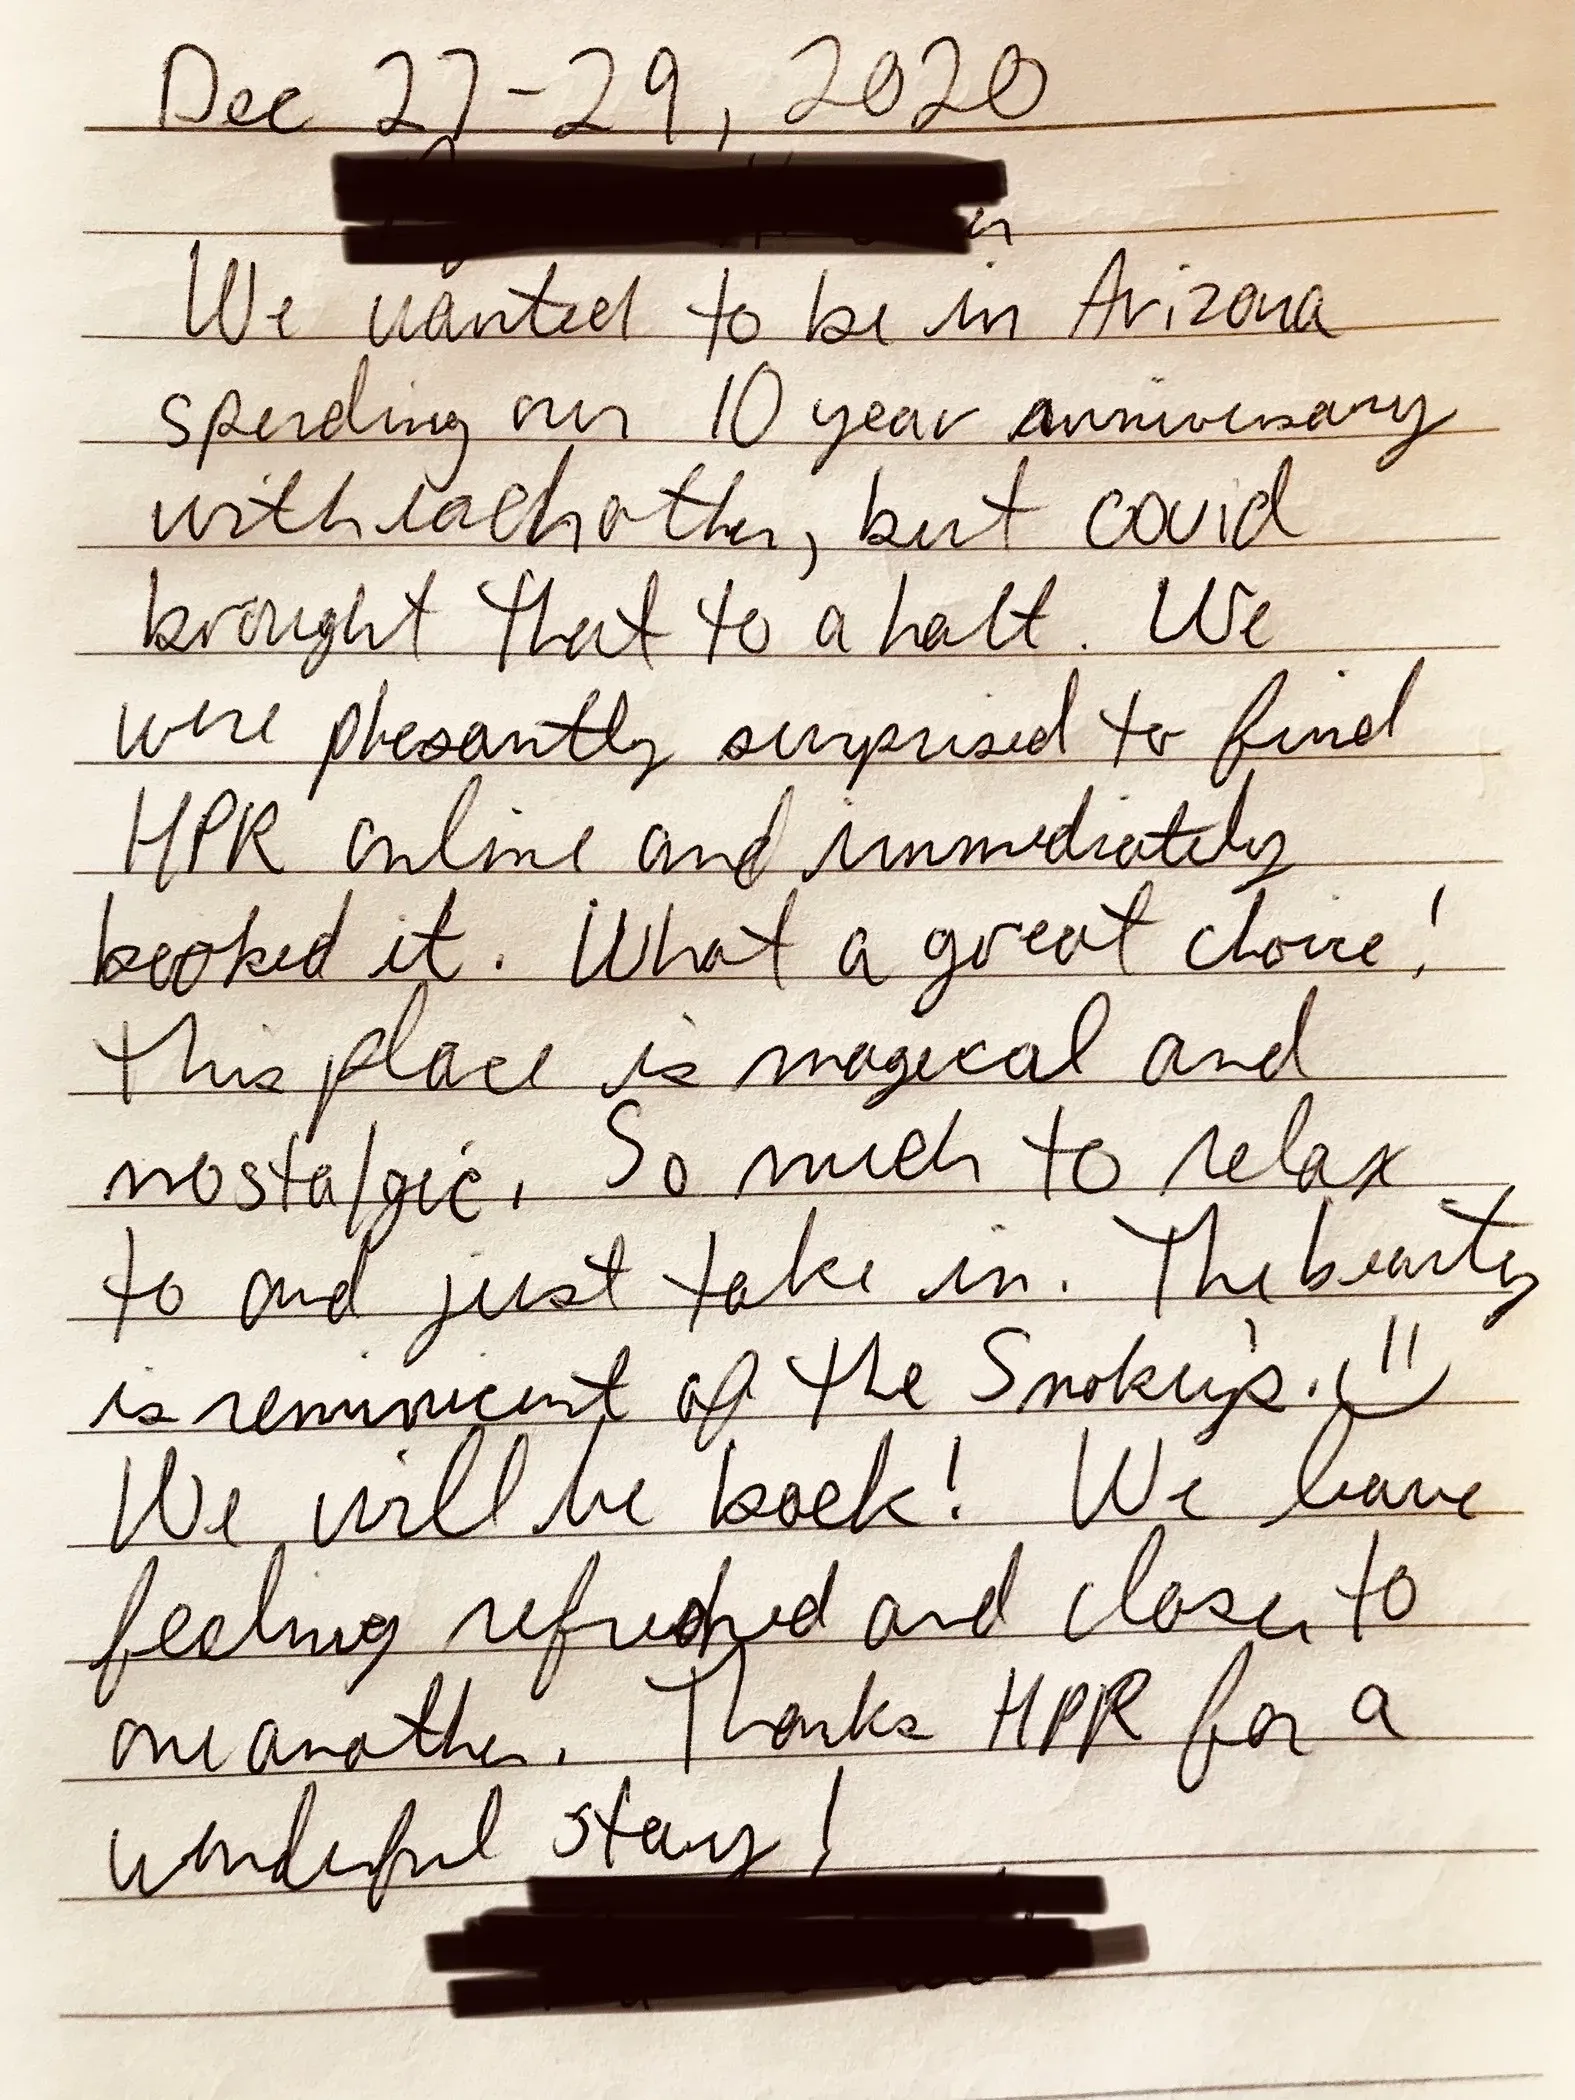 Dec 27-29, 2020
We wanted to be in Arizona
spending our 10 year anniversary
with eachother, but covid
brought that to a halt. We
were plesantly surprised to find
HPR online and immediately
booked it. What a great choice!
This place is magical and
nostalgic. So much to relax
to and just take in. The beauty
is reminicent of the Smokey's. :)
We will be back! We leave
feeling refreshed and closer to
one another. Thanks HPR for a
wonderful stay!